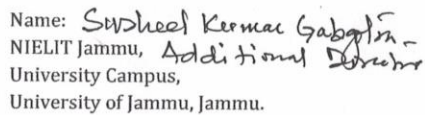 Name: Susheel Kumar
NIELIT Jammu, Additional Director
University Campus,
University of Jammu, Jammu.